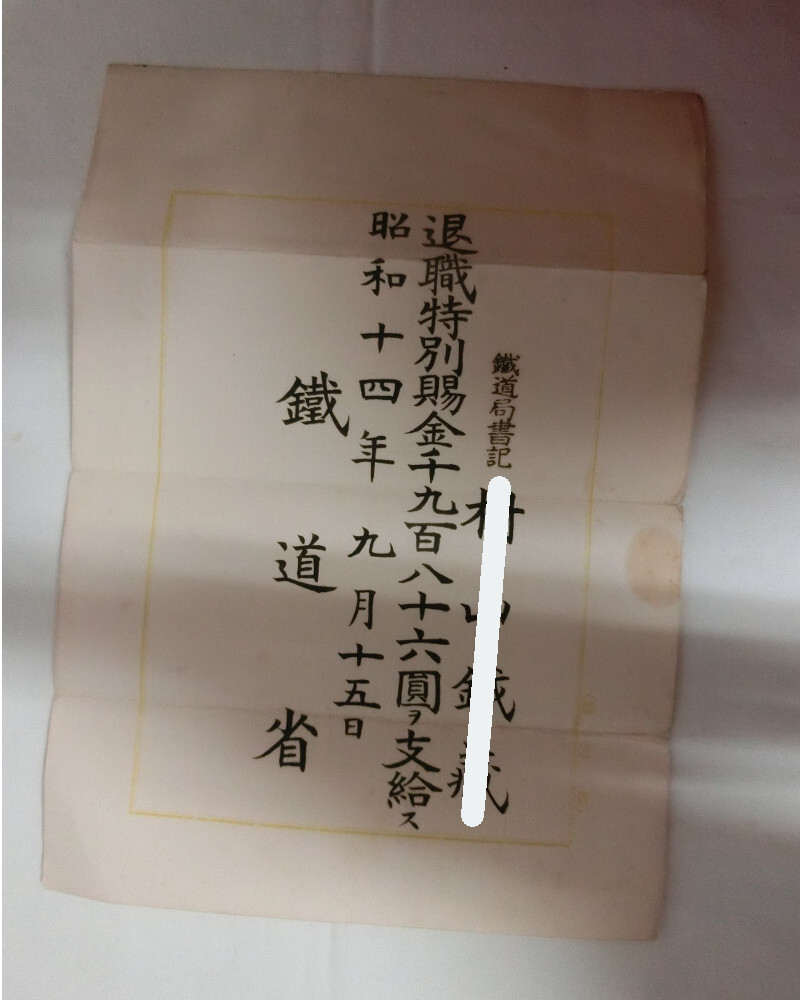 鐵道局書記
退職特別賜金千九百八十六圓ヲ支給ス
昭和十四年九月十五日
鐵道省